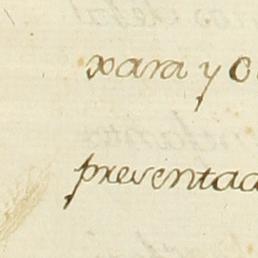 xara y
presentad